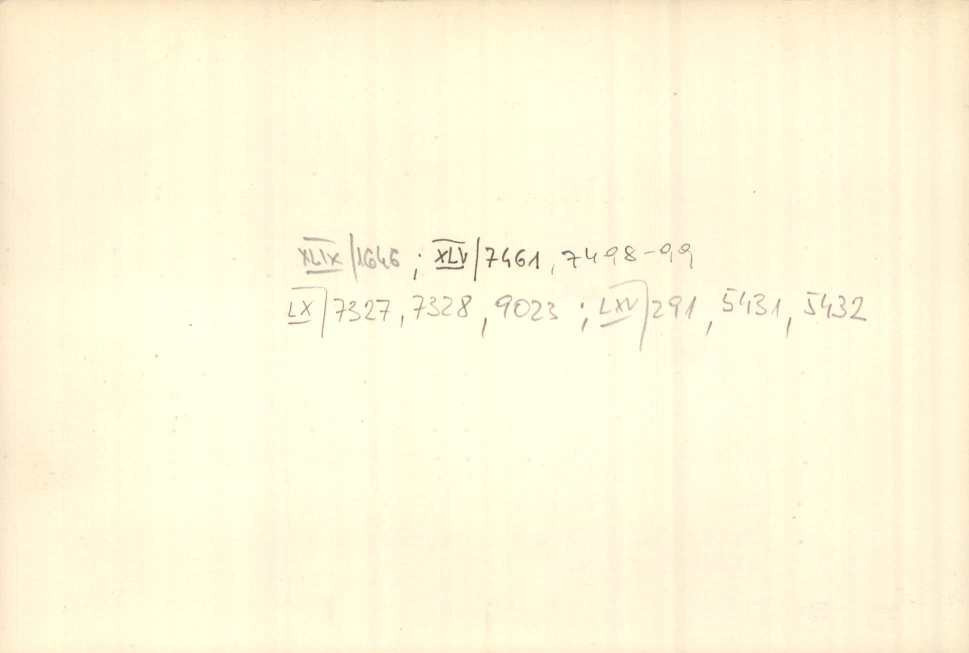 XLIX/1646; XLV/7461, 7498-99
LX/7327, 7328, 9023; LXV/291, 5431, 5432